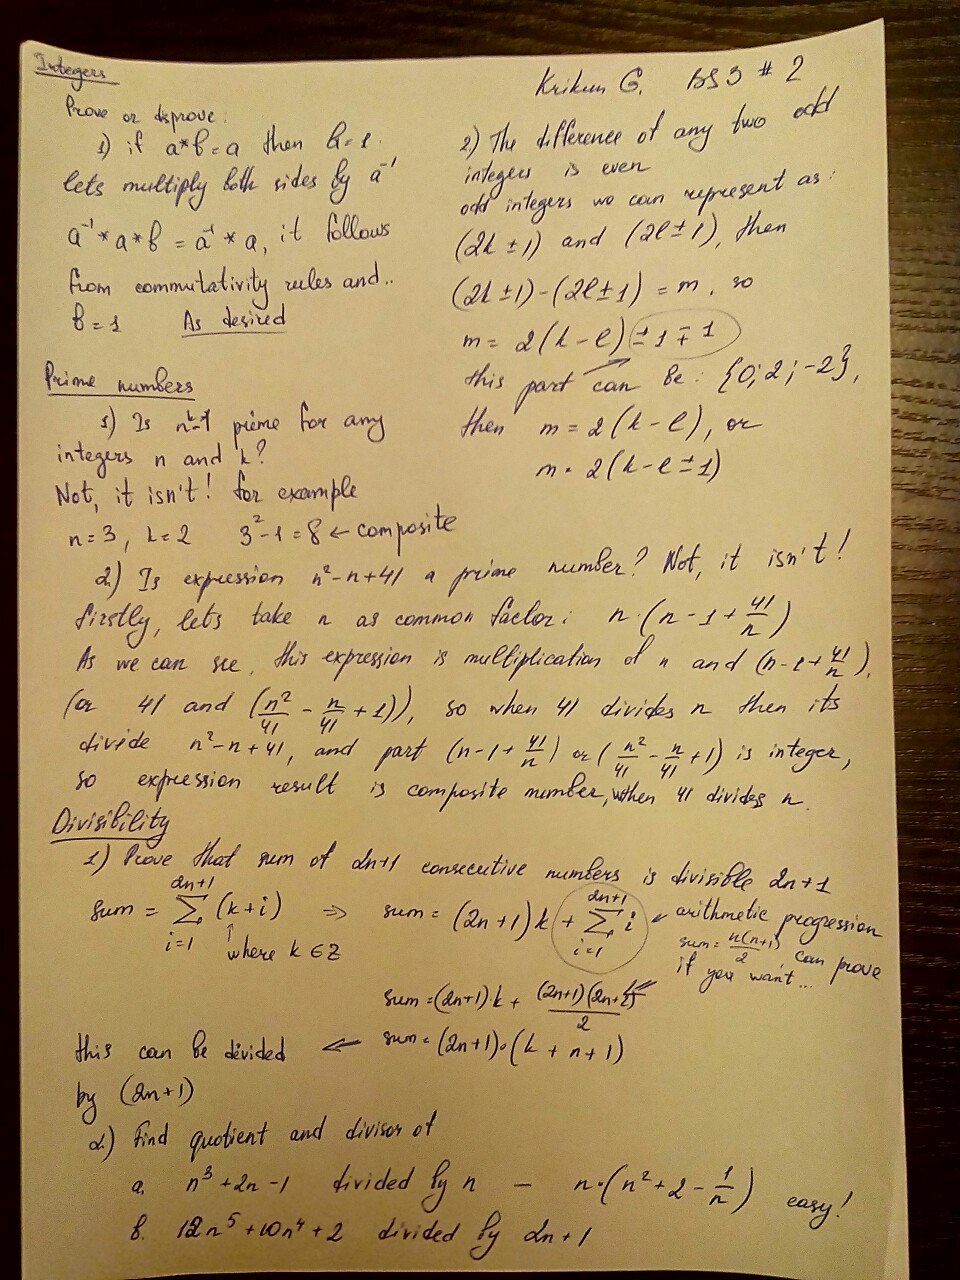 Integers
Krikun G. BS3 # 2
Prove or disprove:
1) if a*b=a then b=1.
lets multiply both sides by a⁻¹
a⁻¹*a*b = a⁻¹*a, it follows
from commutativity rules and..
b=1 As desired
2) The difference of any two odd
integers is even
odd integers we can represent as:
(2k ± 1) and (2l ± 1), then
(2k ± 1) - (2l ± 1) = m, so
m = 2(k - l) ± 1 ∓ 1
this part can be: {0; 2; -2},
then m = 2(k - l), or
m = 2(k - l ± 1)
Prime numbers
1) Is nᵏ-1 prime for any
integers n and k?
Not, it isn't! for example
n=3, k=2 3²-1=8 ← composite
2) Is expression n²-n+41 a prime number? Not, it isn't!
firstly, lets take n as common factor: n·(n-1+41/n)
As we can see, this expression is multiplication of n and (n-1+41/n),
(or 41 and (n²/41 - n/41 + 1)), so when 41 divides n then its
divide n²-n+41, and part (n-1+41/n) or (n²/41 - n/41 + 1) is integer,
so expression result is composite number, when 41 divides n.
Divisibility
1) Prove that sum of 2n+1 consecutive numbers is divisible 2n+1
sum = 2n+1 Σ i=1 (k+i) ⇒ sum = (2n+1)k + 2n+1 Σ i=1 i ← arithmetic progression
where k ∈ Z
sum = n(n+1)/2, can prove
if you want...
sum = (2n+1)k + (2n+1)(2n+2)/2
this can be divided ⇐ sum = (2n+1)·(k + n + 1)
by (2n+1)
2) Find quotient and divisor of
a. n³+2n-1 divided by n — n·(n²+2-1/n) easy!
b. 12n⁵+10n⁴+2 divided by 2n+1